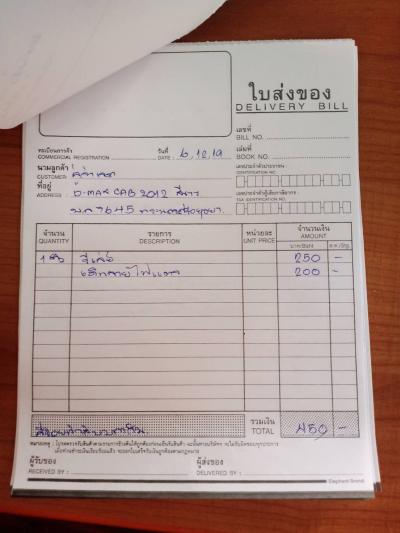 ใบส่งของ
DELIVERY BILL
เลขที่
BILL NO.
ทะเบียนการค้า
COMMERCIAL REGISTRATION
วันที่
DATE : 6,12,19
เล่มที่
BOOK NO.
นามลูกค้า
CUSTOMER
เลขประจำตัวประชาชน
IDENTIFICATION NO.
ที่อยู่
ADDRESS : D-MAX CAB 2012 สีขาว
เลขประจำตัวผู้เสียภาษีอากร
TAX IDENTIFICATION NO.
7645
จำนวน
QUANTITY
รายการ
DESCRIPTION
หน่วยละ
UNIT PRICE
จำนวนเงิน
AMOUNT
1 ตัว รีเลย์ 250 -
200 -
สี่ร้อยห้าสิบบาทถ้วน
รวมเงิน
TOTAL
450 -
ผู้รับของ
RECEIVED BY :
ผู้ส่งของ
DELIVERED BY :
Elephant Brand